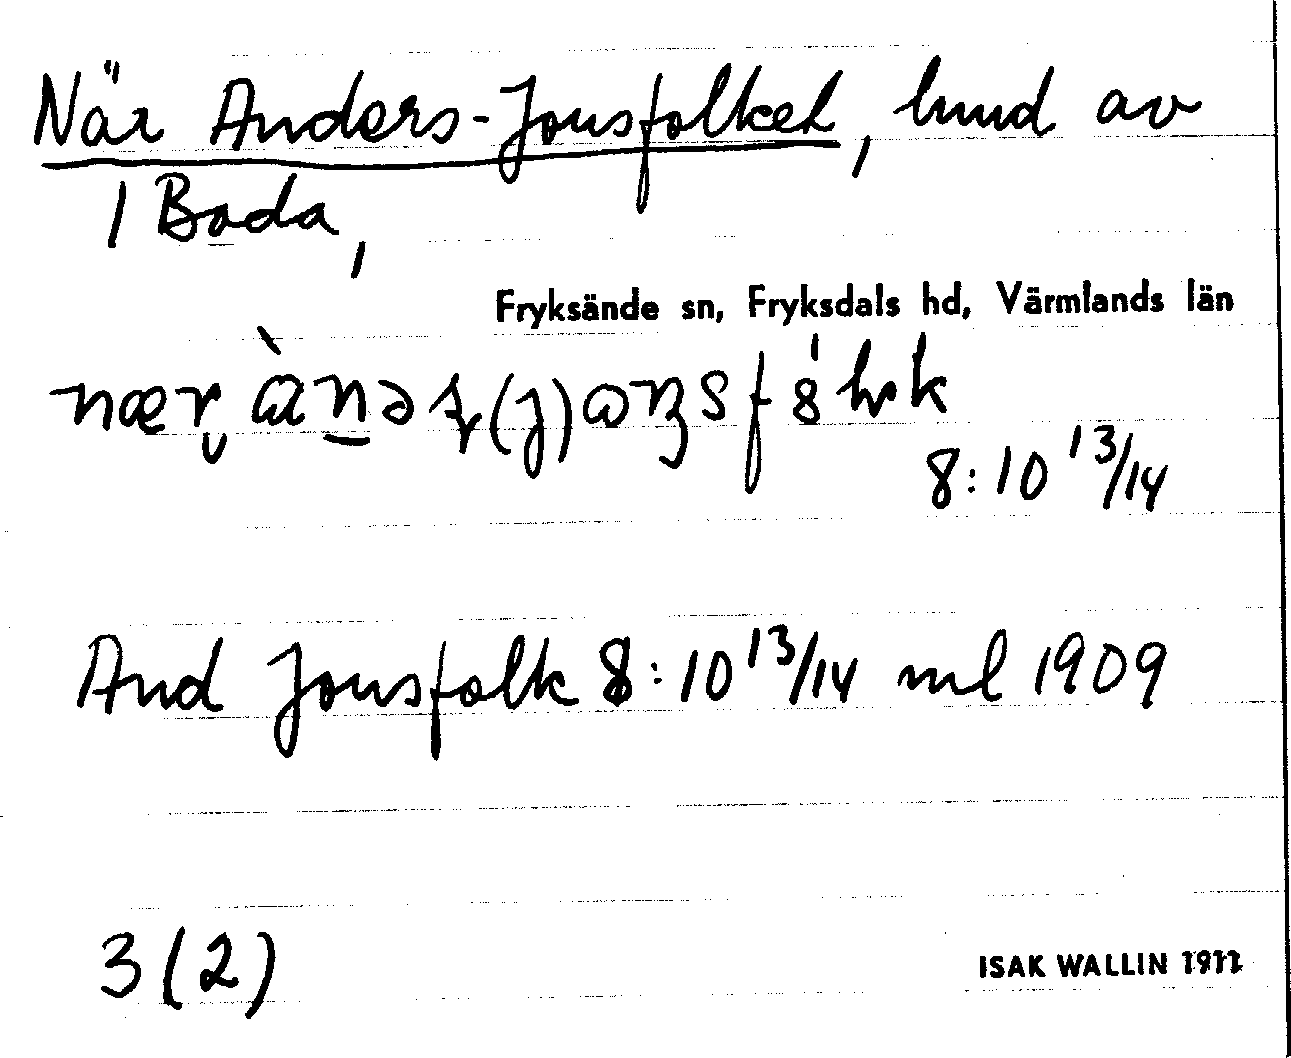 När Anders-Jonsfolket, lund av
1 Bada,
Fryksände sn, Fryksdals hd, Värmlands län
8:10 13/14
And Jonsfolk 8:10 13/14 ml 1909
3(2)
ISAK WALLIN 1911